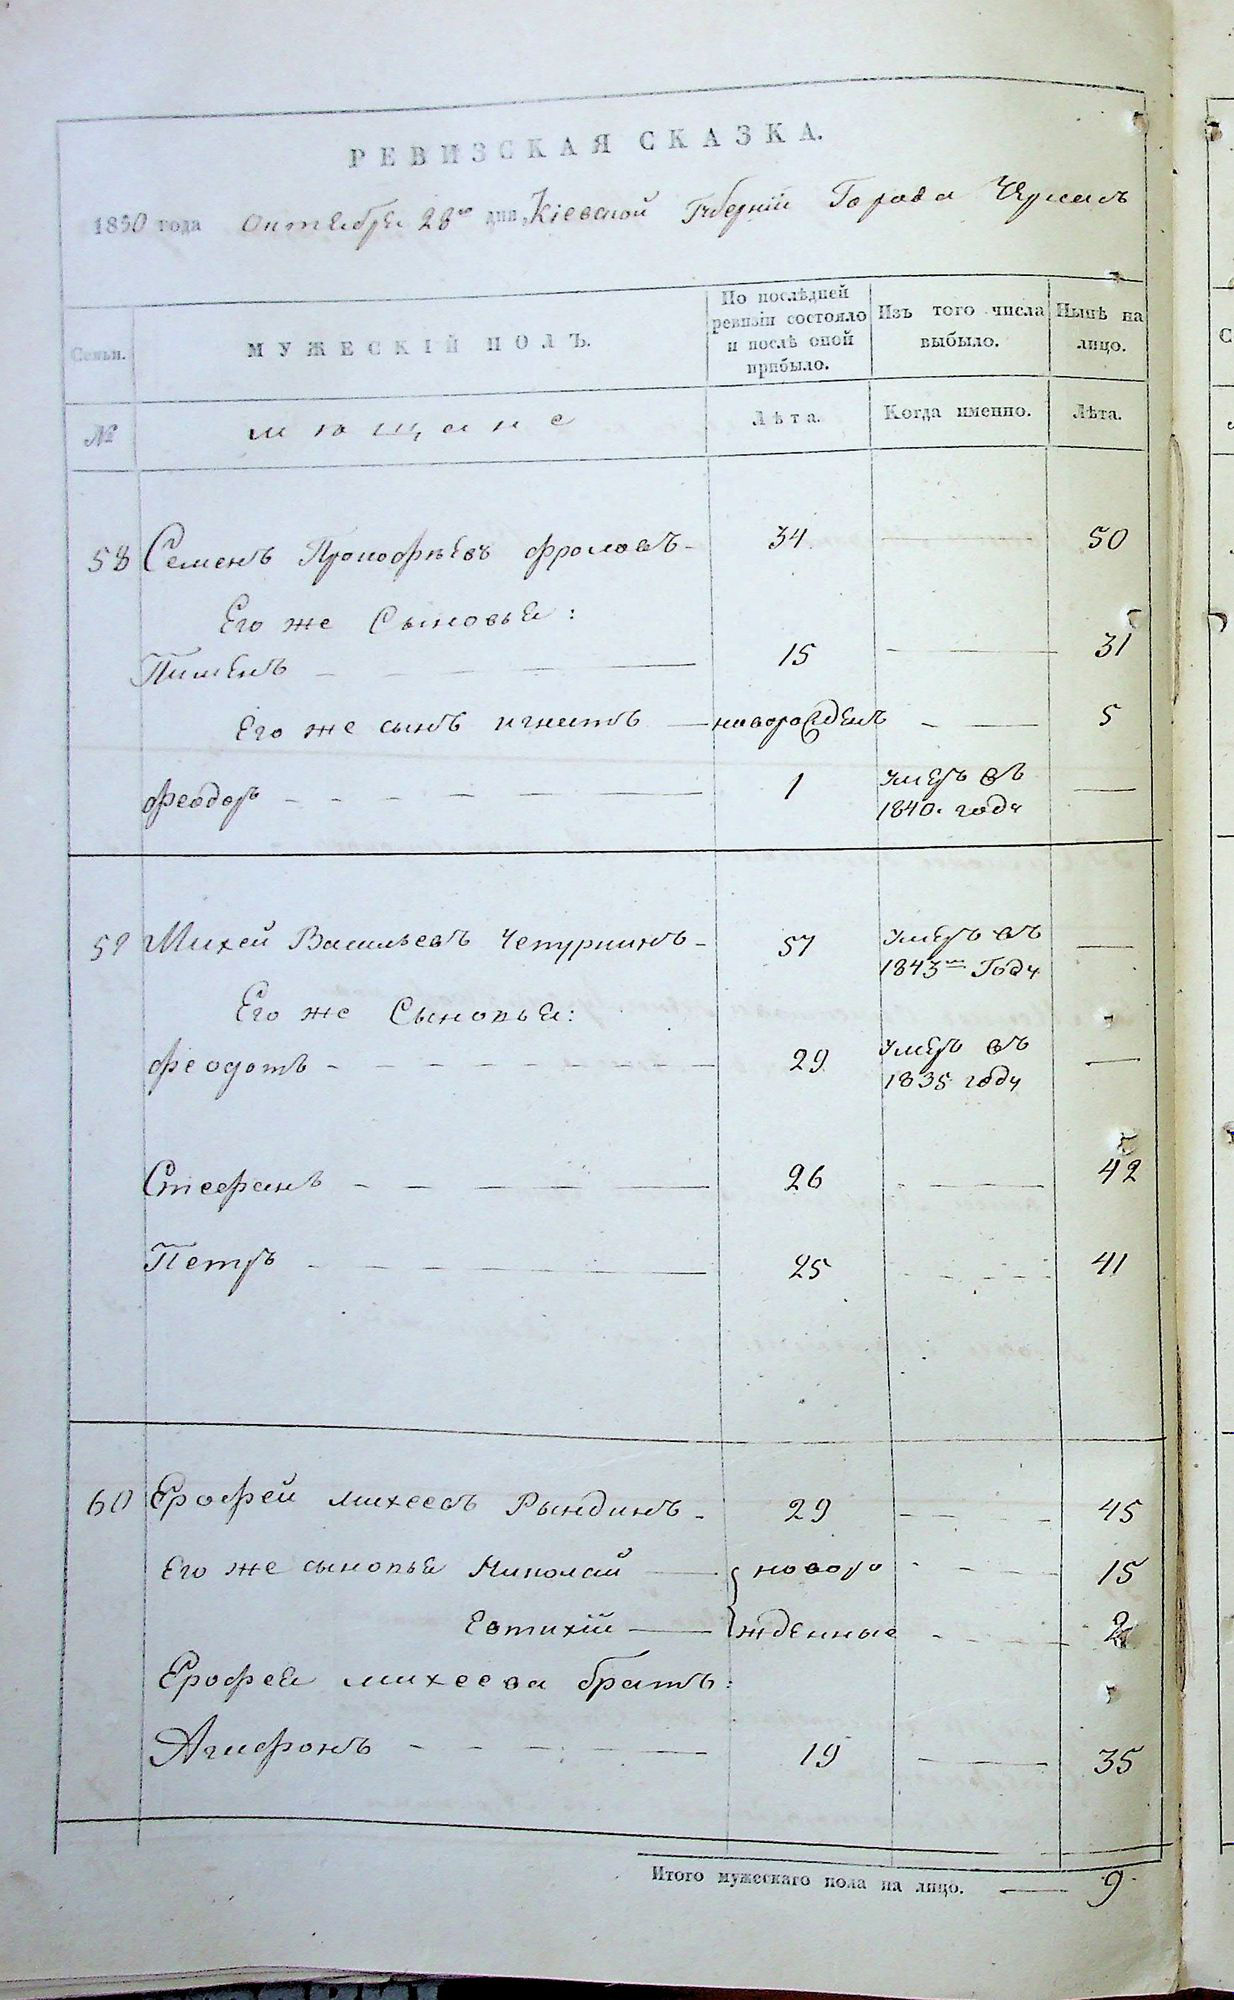 РЕВИЗСКАЯ СКАЗКА.
1850 года Октября 28го дня, Кіевской Губерніи Города Черкасъ
Семьи.
МУЖЕСКІЙ ПОЛЪ.
По послѣдней ревизіи состояло и послѣ оной прибыло.
Изъ того числа выбыло.
Нынѣ на лицо.
№ мещане Лѣта. Когда именно. Лѣта.
58 Семенъ Прокофьевъ Фроловъ 34 50
Его же Сыновья:
Пименъ 15 31
Его же сынъ игнатъ новорожденъ 5
Феодоръ 1 умеръ въ 1840. году
59 Михей Васильевъ Чепурнинъ 57 умеръ въ 1843мъ Году
Его же Сыновья:
Феодотъ 29 умеръ въ 1835 году
Стефанъ 26 42
Петръ 25 41
60 Ерофей михеевъ Рындинъ 29 45
Его же сыновья Николай новоро 15
Евтихій жденные 2
Ерофея михеева братъ:
Агафонъ 19 35
Итого мужескаго пола на лицо. 9